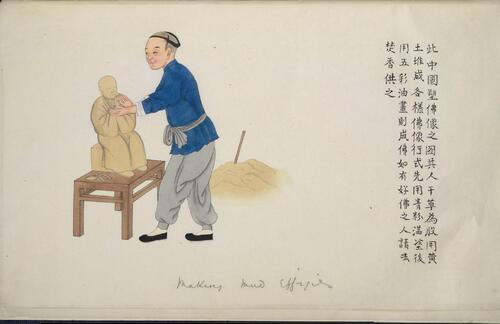 此中國塑佛像之圖其人干草為胎用黃
土堆成各樣佛像行式先用青粉滿塗後
用五彩油畫則成佛如有好佛之人請去
焚香供之
Making Mud Effigies